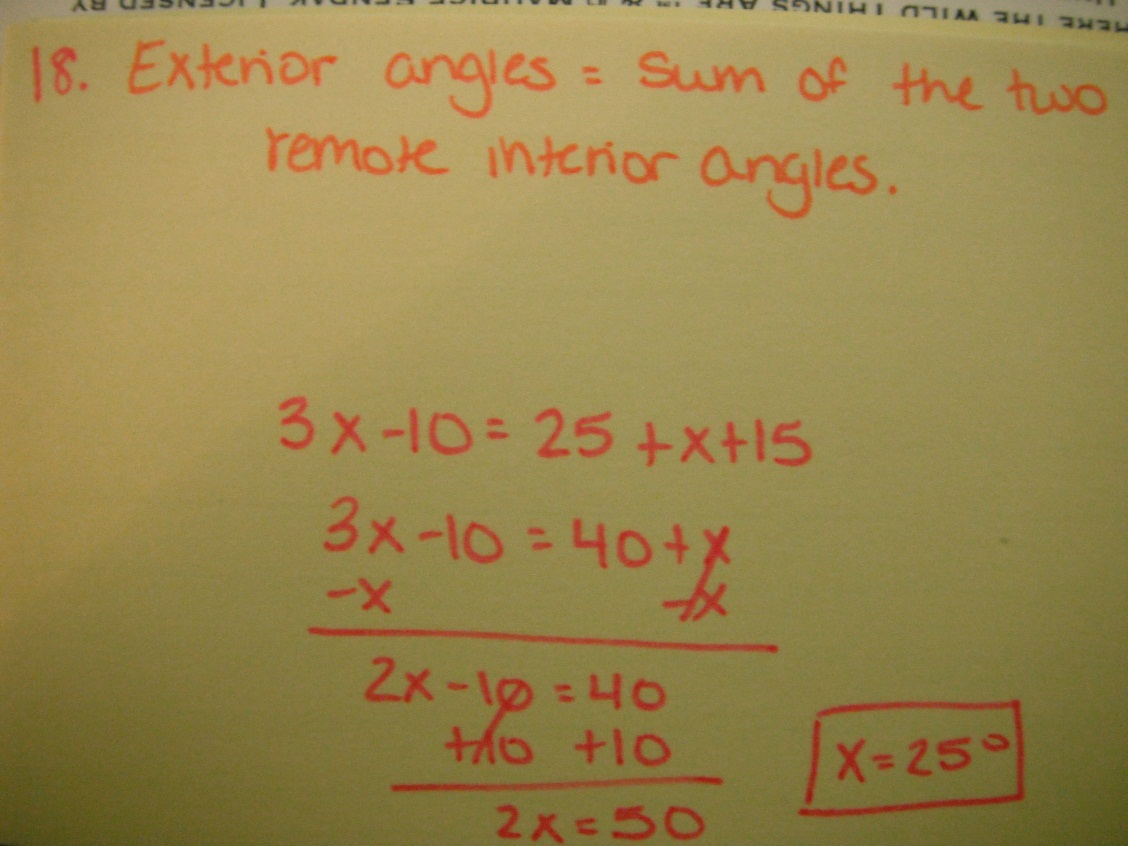 HERE THE WILD THINGS ARE
MAURICE SENDAK
LICENSED BY
18. Exterior angles = Sum of the two
remote interior angles.
3x-10= 25 +x+15
3x-10 = 40+x
-x -x
2x-10 = 40
+10 +10
2x=50
x=25°